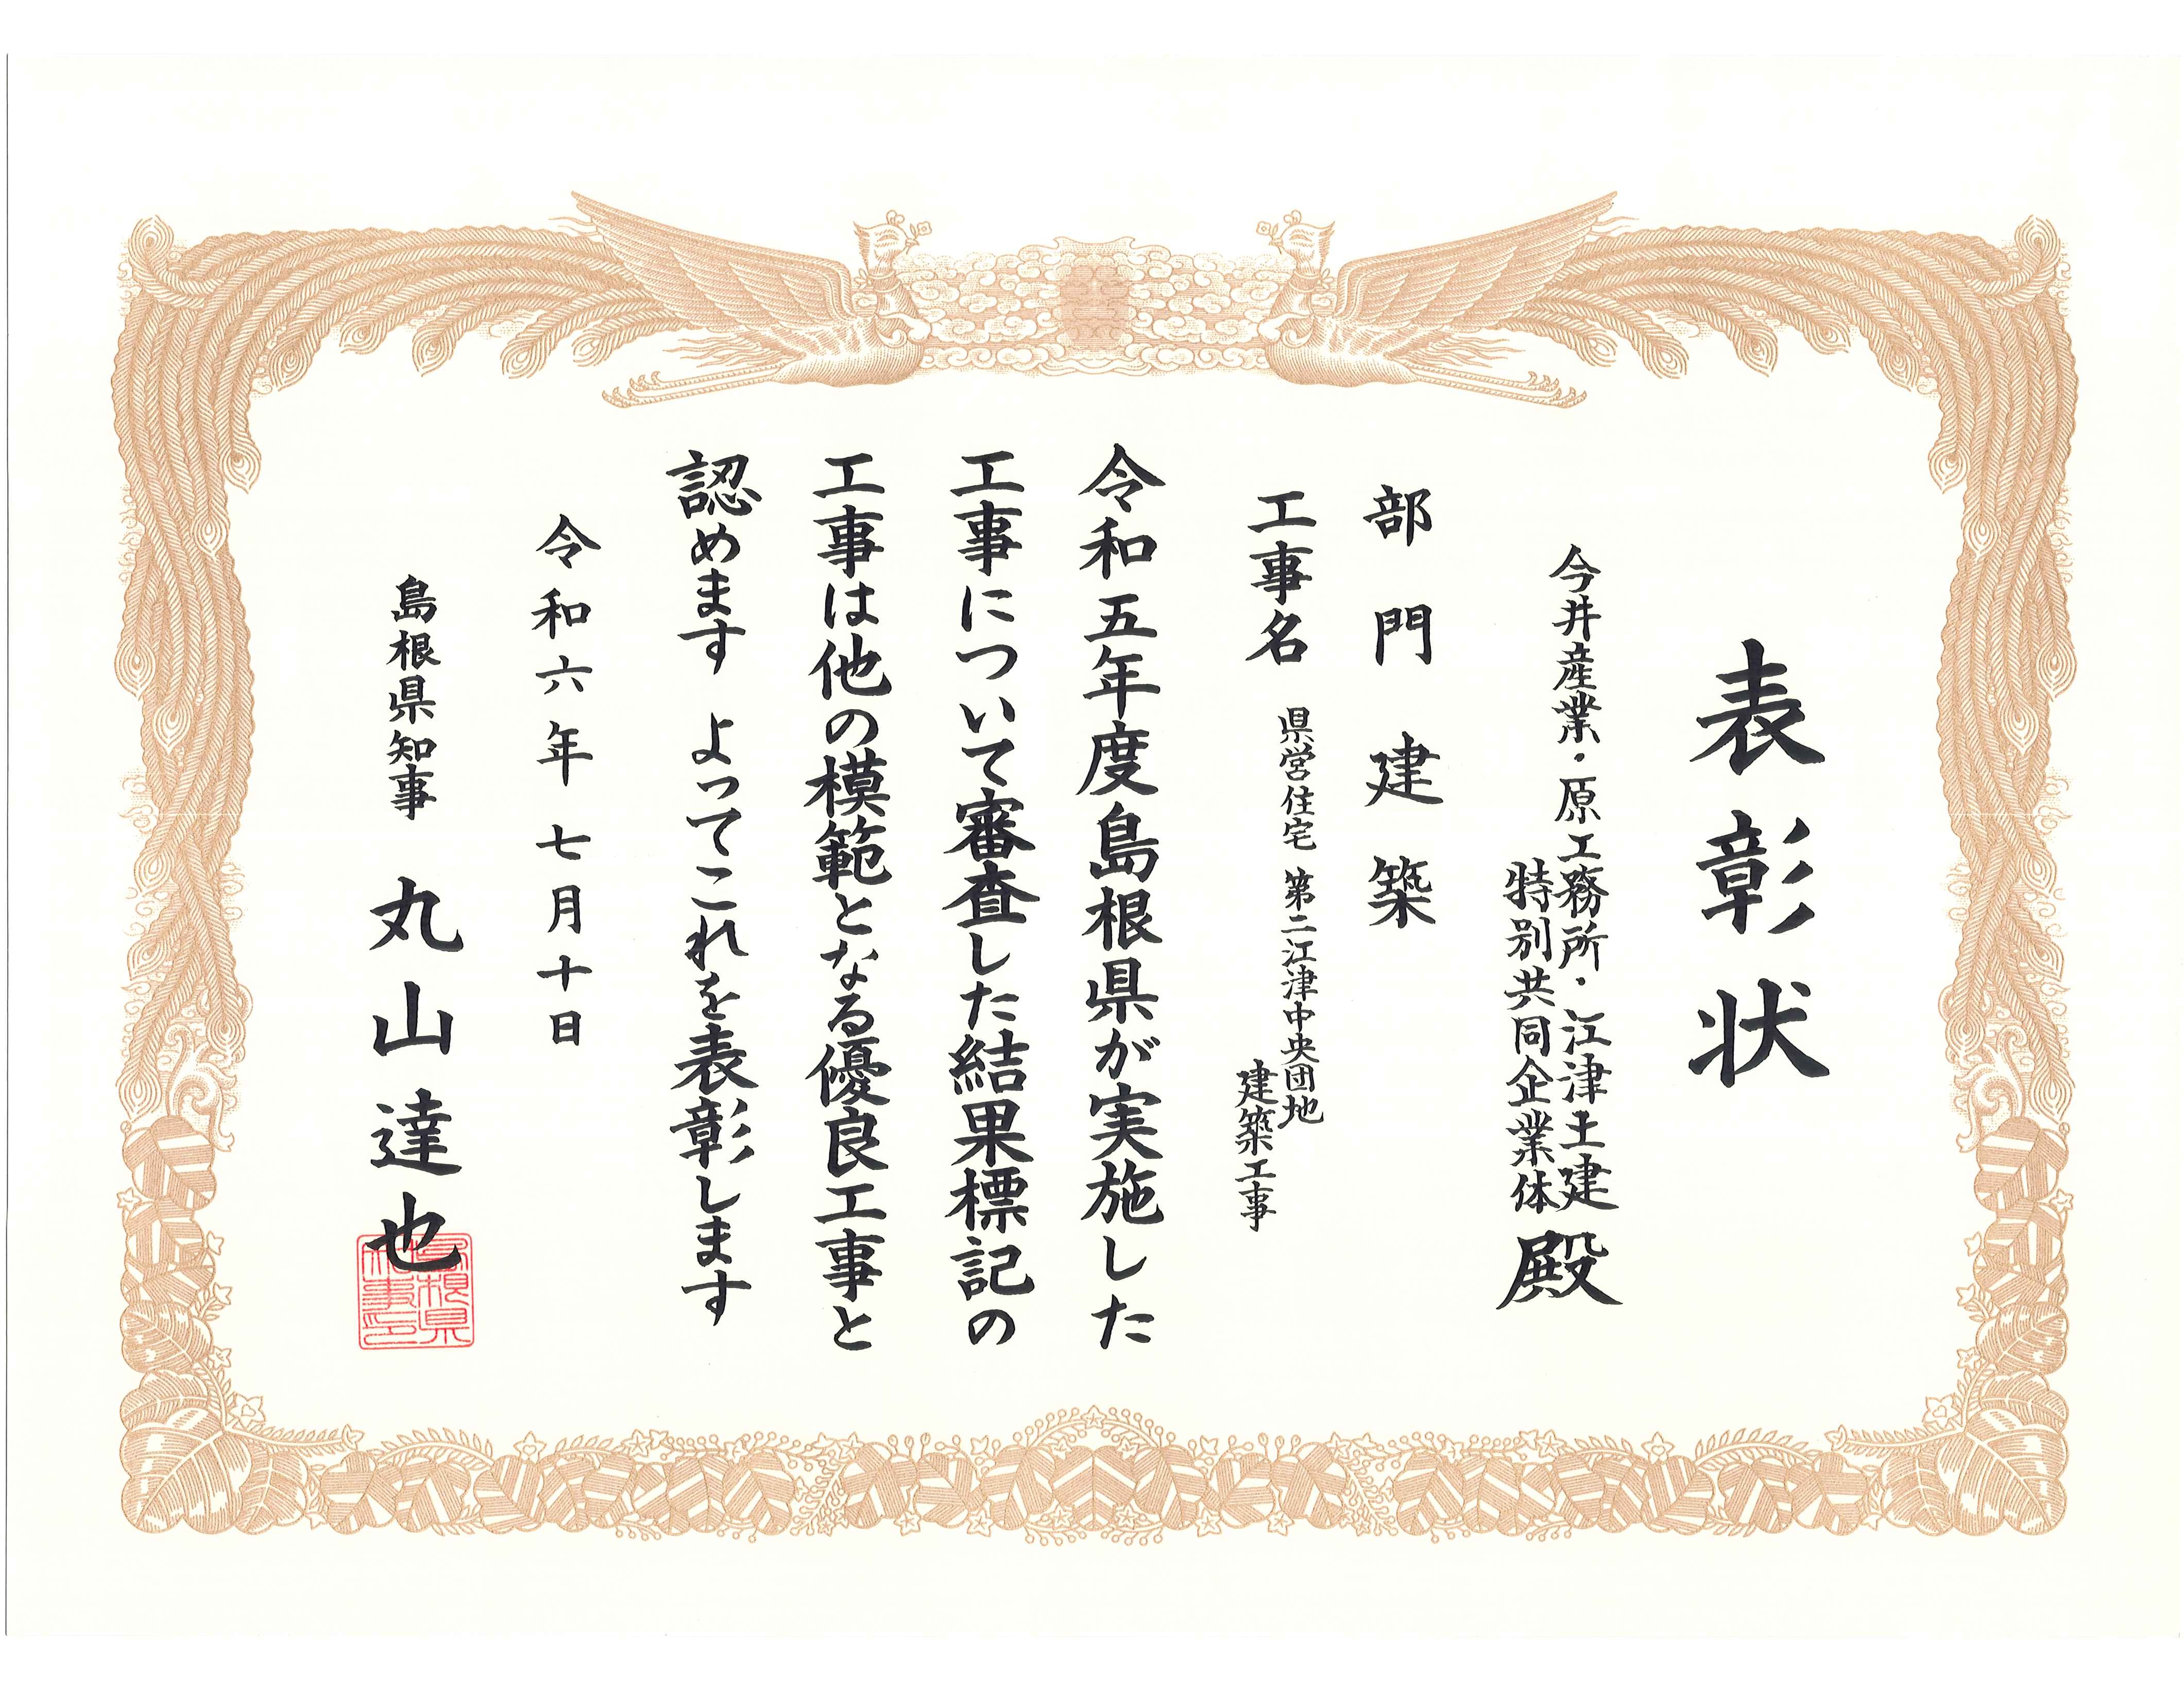 表彰状
今井産業・原工務所・江津土建
特別共同企業体 殿
部門 建築
工事名 県営住宅 第二江津中央団地
建築工事
令和五年度島根県が実施した
工事について審査した結果標記の
工事は他の模範となる優良工事と
認めます よってこれを表彰します
令和六年七月十日
島根県知事 丸山達也
島根県
知事印